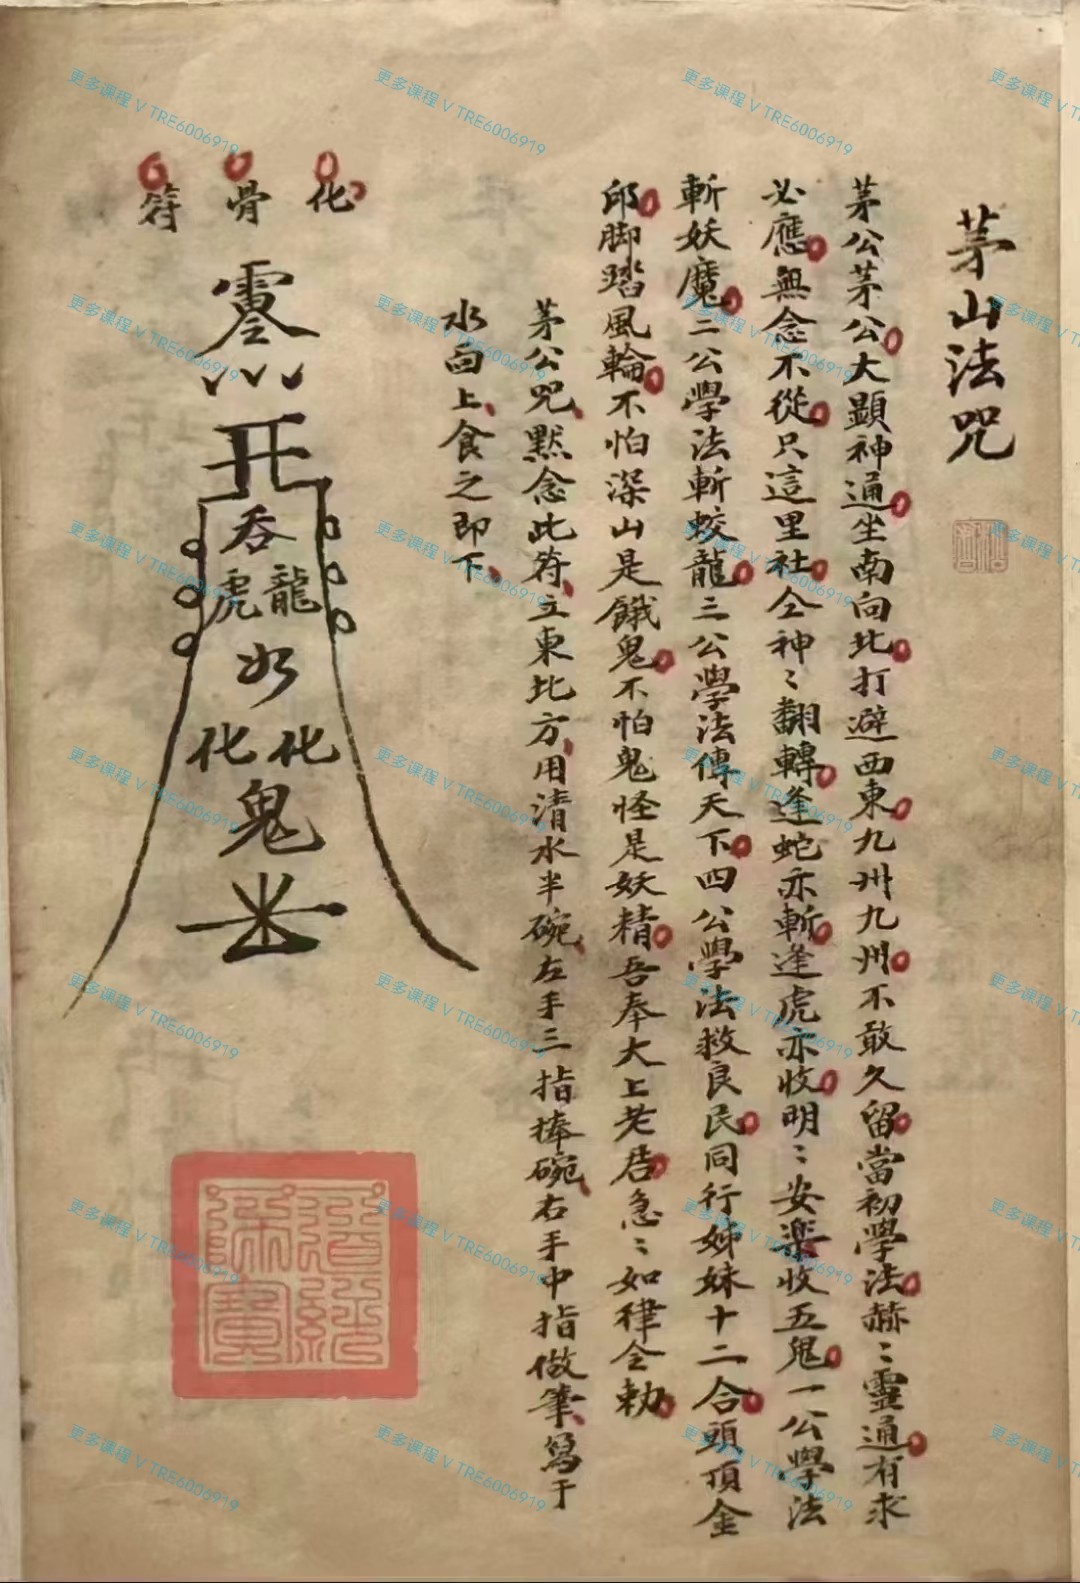 茅山法咒
茅公茅公大顯神通坐南向北打避西東九州九州不敢久留當初學法赫〻靈通有求
必應無念不從只這里社仝神〻翻轉逢蛇亦斬逢虎亦收明〻安楽收五鬼一公學法
斬妖魔二公學法斬蛟龍三公學法傳天下四公學法救良民同行姊妹十二合頭頂金
邱脚踏風輪不怕深山是餓鬼不怕鬼怪是妖精吾奉大上老君急〻如律令勅
茅公咒默念此符立東北方用清水半碗左手三指捧碗右手中指做筆寫于
水面上食之即下
化骨符
吞
龍虎
化化
鬼
道經師寶
更多课程 V TRE6006919
更多课程 V TRE6006919
更多课程 V TRE6006919
更多课程 V T
更多课程 V TRE6006919
更多课程 V TRE6006919
更多课程 V TRE6006919
更多课程 V T
更多课程 V TRE6006919
更多课程 V TRE6006919
更多课程 V TRE6006919
更多课程 V T
更多课程 V TRE6006919
更多课程 V TRE6006919
更多课程 V TRE6006919
更多课程 V T
更多课程 V TRE6006919
更多课程 V TRE6006919
更多课程 V TRE6006919
更多课程 V T
更多课程 V TRE6006919
更多课程 V TRE6006919
更多课程 V TRE6006919
更多课程 V T
更多课程 V TRE6006919
更多课程 V TRE6006919
更多课程 V TRE6006919
更多课程 V T